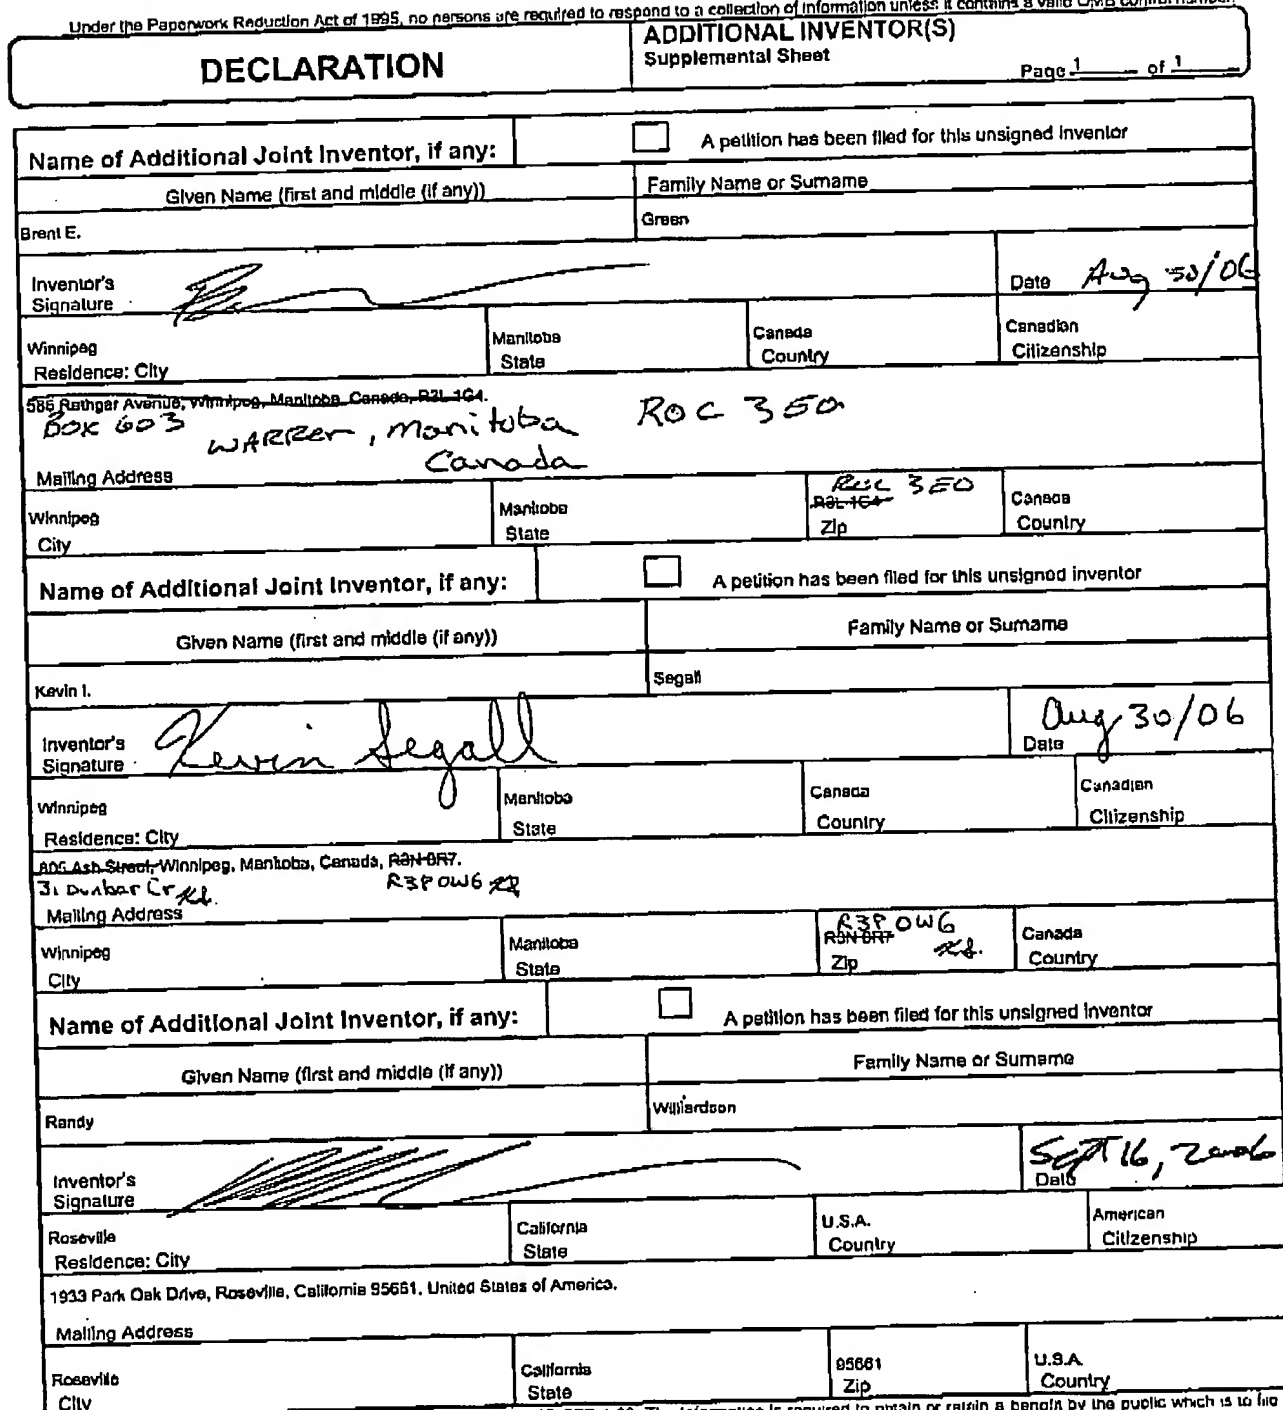 Under the Paperwork Reduction Act of 1995, no persons are required to respond to a collection of information unless it contains a valid OMB control number.
DECLARATION
ADDITIONAL INVENTOR(S)
Supplemental Sheet
Page 1 of 1
Name of Additional Joint Inventor, if any:
A petition has been filed for this unsigned inventor
Given Name (first and middle (if any))
Family Name or Surname
Brent E.
Green
Inventor's
Signature
Date Aug 30/06
Winnipeg
Manitoba
Canada
Canadian
Residence: City
State
Country
Citizenship
586 Rathgar Avenue, Winnipeg, Manitoba, Canada, R3L 1G4.
BOX 603
WARREN, Manitoba R0C 3E0
Canada
Mailing Address
R0C 3E0
Winnipeg
Manitoba
R3L 1G4
Canada
City
State
Zip
Country
Name of Additional Joint Inventor, if any:
A petition has been filed for this unsigned inventor
Given Name (first and middle (if any))
Family Name or Surname
Kevin I.
Segall
Inventor's
Signature
Kevin Segall
Aug 30/06
Date
Winnipeg
Manitoba
Canada
Canadian
Residence: City
State
Country
Citizenship
805 Ash Street, Winnipeg, Manitoba, Canada, R3N 0R7.
31 Dunbar Cr K.S. R3P 0W6
Mailing Address
R3P 0W6
Winnipeg
Manitoba
R3N 0R7 K.S.
Canada
City
State
Zip
Country
Name of Additional Joint Inventor, if any:
A petition has been filed for this unsigned inventor
Given Name (first and middle (if any))
Family Name or Surname
Randy
Williardson
Inventor's
Signature
Sept 16, 2006
Date
Roseville
California
U.S.A.
American
Residence: City
State
Country
Citizenship
1933 Park Oak Drive, Roseville, California 95661, United States of America.
Mailing Address
Roseville
California
95661
U.S.A.
City
State
Zip
Country
The information is required to obtain or retain a benefit by the public which is to file